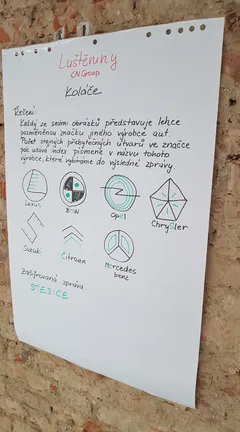 Luštěniny
CN Group
Koláče
Řešení:
Každý ze sedmi obrázků představuje lehce
pozměněnou značku jiného výrobce aut.
Počet stejných přebytečných útvarů ve značce
pak udává index písmene v názvu tohoto
výrobce, které vybíráme do výsledné zprávy.
Lexus
BMW
Opel
Chrysler
Suzuki
Citroen
Mercedes
benz
Zašifrovaná zpráva: